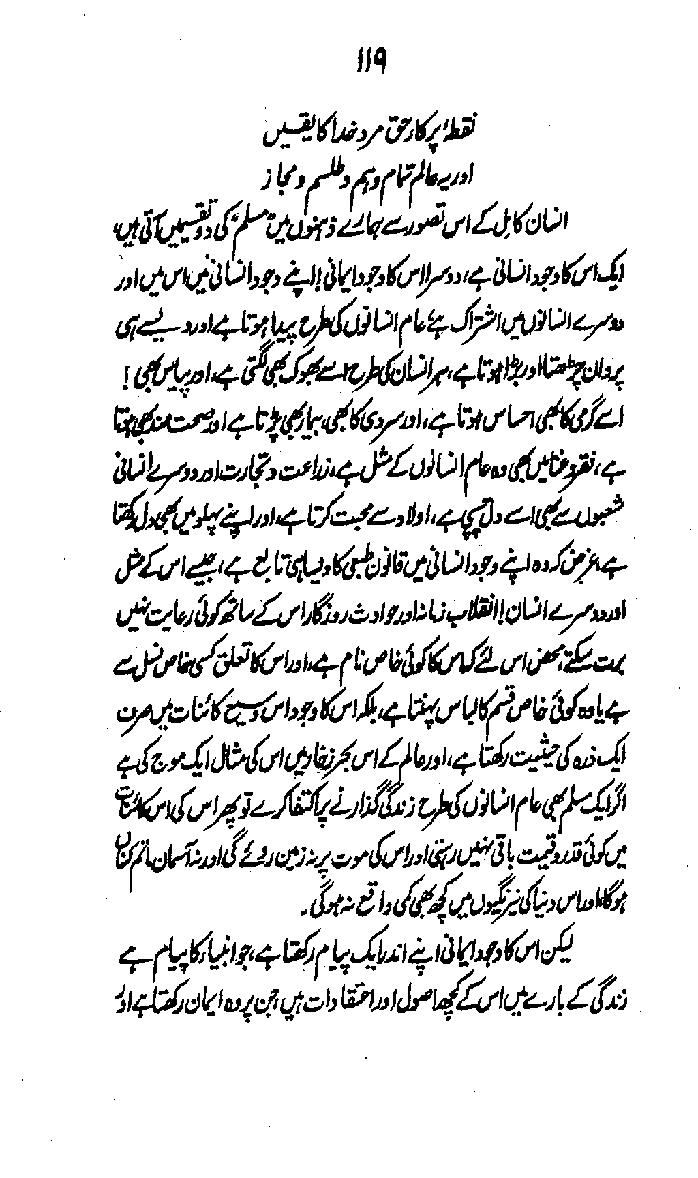 ۱۱۹
نقطۂ پرکارِ حق مردِ خدا کا یقیں
اور یہ عالم تمام وہم و طلسم و مجاز
انسان کامل کے اس تصور سے ہمارے ذہنوں میں "مسلم" کی دو تقسیمیں آتی ہیں،
ایک اس کا وجود انسانی ہے، دوسرا اس کا وجود ایمانی! اپنے وجود انسانی میں اس میں اور
دوسرے انسانوں میں اشتراک ہے عام انسانوں کی طرح پیدا ہوتا ہے اور ویسے ہی
پروان چڑھتا اور بڑا ہوتا ہے، ہر انسان کی طرح اسے بھوک بھی لگتی ہے، اور پیاس بھی!
اسے گرمی کا بھی احساس ہوتا ہے، اور سردی کا بھی، بیمار بھی پڑتا ہے اور صحت مند بھی ہوتا
ہے، فقر و غنا میں بھی وہ عام انسانوں کے مثل ہے، زراعت و تجارت اور دوسرے انسانی
شعبوں سے بھی اسے دلچسپی ہے، اولاد سے محبت کرتا ہے، اور اپنے پہلو میں بھی دل رکھتا
ہے، غرض کہ وہ اپنے وجود انسانی میں قانون طبعی کا ویسا ہی تابع ہے، جیسے اس کے مثل
اور دوسرے انسان! انقلاب زمانہ اور حوادث روزگار اس کے ساتھ کوئی رعایت نہیں
برت سکتے، محض اس لئے کہ اس کا کوئی خاص نام ہے، اور اس کا تعلق کسی خاص نسل سے
ہے یا وہ کوئی خاص قسم کا لباس پہنتا ہے، بلکہ اس کا وجود اس وسیع کائنات میں صرف
ایک ذرہ کی حیثیت رکھتا ہے، اور عالم کے اس بحر زخار میں اس کی مثال ایک موج کی ہے
اگر ایک مسلم بھی عام انسانوں کی طرح زندگی گذارنے پر اکتفا کرے تو پھر اس کی اس کائنات
میں کوئی قدر و قیمت باقی نہیں رہتی اور اس کی موت پر نہ زمین روئے گی اور نہ آسمان ماتم کناں
ہوگا، اور اس دنیا کی نیرنگیوں میں کچھ بھی کمی واقع نہ ہوگی۔
لیکن اس کا وجود ایمانی اپنے اندر ایک پیام رکھتا ہے، جو انبیاء کا پیام ہے
زندگی کے بارے میں اس کے کچھ اصول اور اعتقادات ہیں جن پر وہ ایمان رکھتا ہے اور